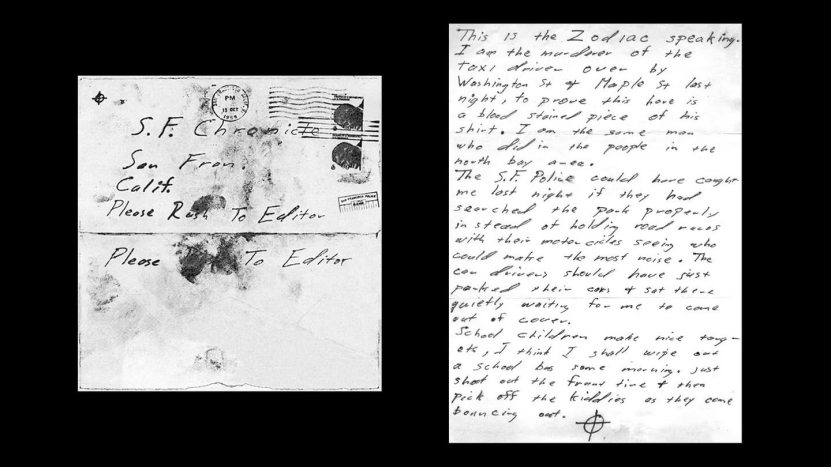 PM
13 OCT
1969
S.F. Chronicle
San Fran.
Calif.
Please Rush To Editor
Please To Editor
This is the Zodiac speaking.
I am the murderer of the
taxi driver over by
Washington St + Maple St last
night, to prove this here is
a blood stained piece of his
shirt. I am the same man
who did in the people in the
north bay area.
The S.F. Police could have caught
me last night if they had
searched the park properly
instead of holding road races
with their motorcicles seeing who
could make the most noise. The
car drivers should have just
parked their cars + sat there
quietly waiting for me to come
out of cover.
School children make nice targ-
ets, I think I shall wipe out
a school bus some morning. Just
shoot out the front tire + then
pick off the kiddies as they come
bouncing out.